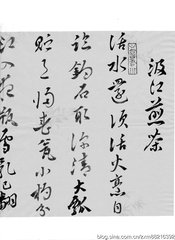 汲江煎茶
活水還須活火烹自
臨釣石取深清大瓢
貯月歸春甕小杓分
江入夜瓶雪乳已翻
blog.sina.com.cn/zxm66216398